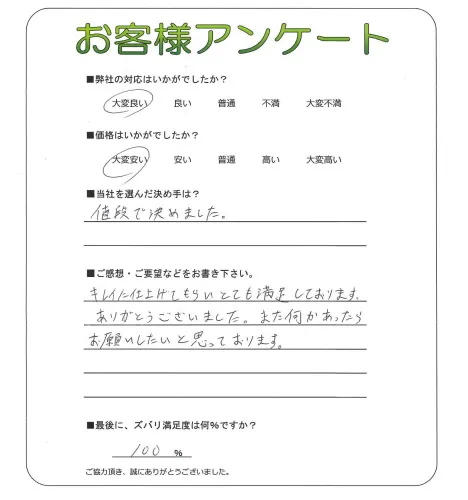 お客様アンケート
■弊社の対応はいかがでしたか?
大変良い 良い 普通 不満 大変不満
■価格はいかがでしたか?
大変安い 安い 普通 高い 大変高い
■当社を選んだ決め手は?
値段で決めました。
■ご感想・ご要望などをお書き下さい。
キレイに仕上げてもらいとても満足しております。
ありがとうございました。また何かあったら
お願いしたいと思っております。
■最後に、ズバリ満足度は何%ですか?
100 %
ご協力頂き、誠にありがとうございました。